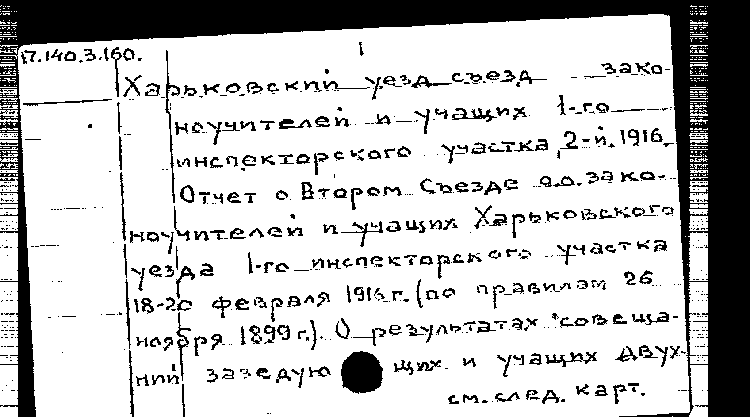 17.140.3.160.
1
Харьковский уезд. съезд зако-
ноучителей и учащих 1-го
инспекторского участка, 2-й. 1916.
Отчет о Втором Съезде о.о. зако-
ноучителей и учащих Харьковского
уезда 1-го инспекторского участка
18-20 февраля 1916 г. (по правилам 26
ноября 1899 г.). О результатах совеща-
ний заведую щих и учащих двух-
см. след. карт.